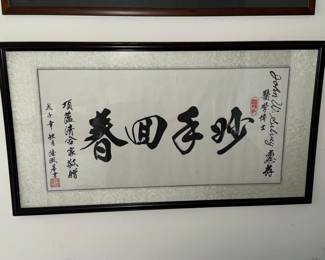 John W.
醫學博士 惠存
妙手回春
項蓝清合家敬贈
戊子年 秋月